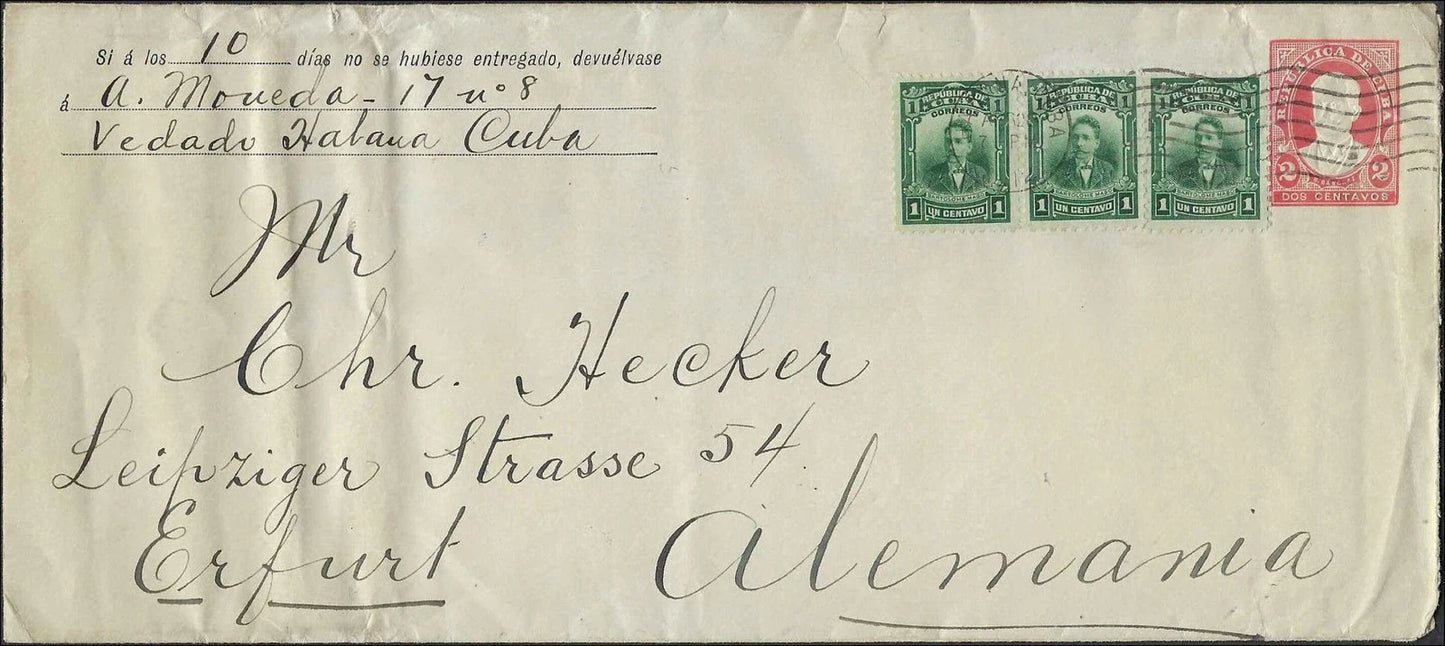 Si á los 10 días no se hubiese entregado, devuélvase
á A. Moneda - 17 nº 8
Vedado Habana Cuba
REPÚBLICA DE CUBA
CORREOS
1 1
BARTOLOMÉ MASÓ
1 UN CENTAVO 1
REPÚBLICA DE CUBA
CORREOS
1 1
BARTOLOMÉ MASÓ
1 UN CENTAVO 1
REPÚBLICA DE CUBA
CORREOS
1 1
BARTOLOMÉ MASÓ
1 UN CENTAVO 1
REPÚBLICA DE CUBA
2 2
DOS CENTAVOS
Mr
Chr. Hecker
Leipziger Strasse 54
Erfurt Alemania